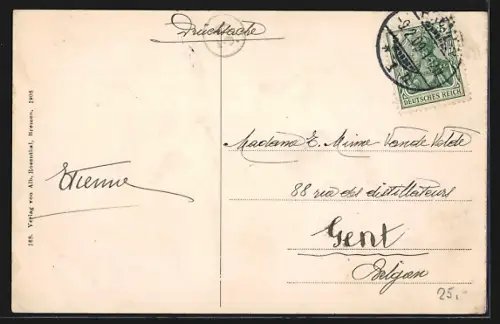 Drucksache
DEUTSCHES REICH
168. Verlag von Alb. Rosenthal, Bremen. 1903
Etienne
Madame E. Mime Vande Velde
88 rue des distillateurs
Gent
Belgien
25.-